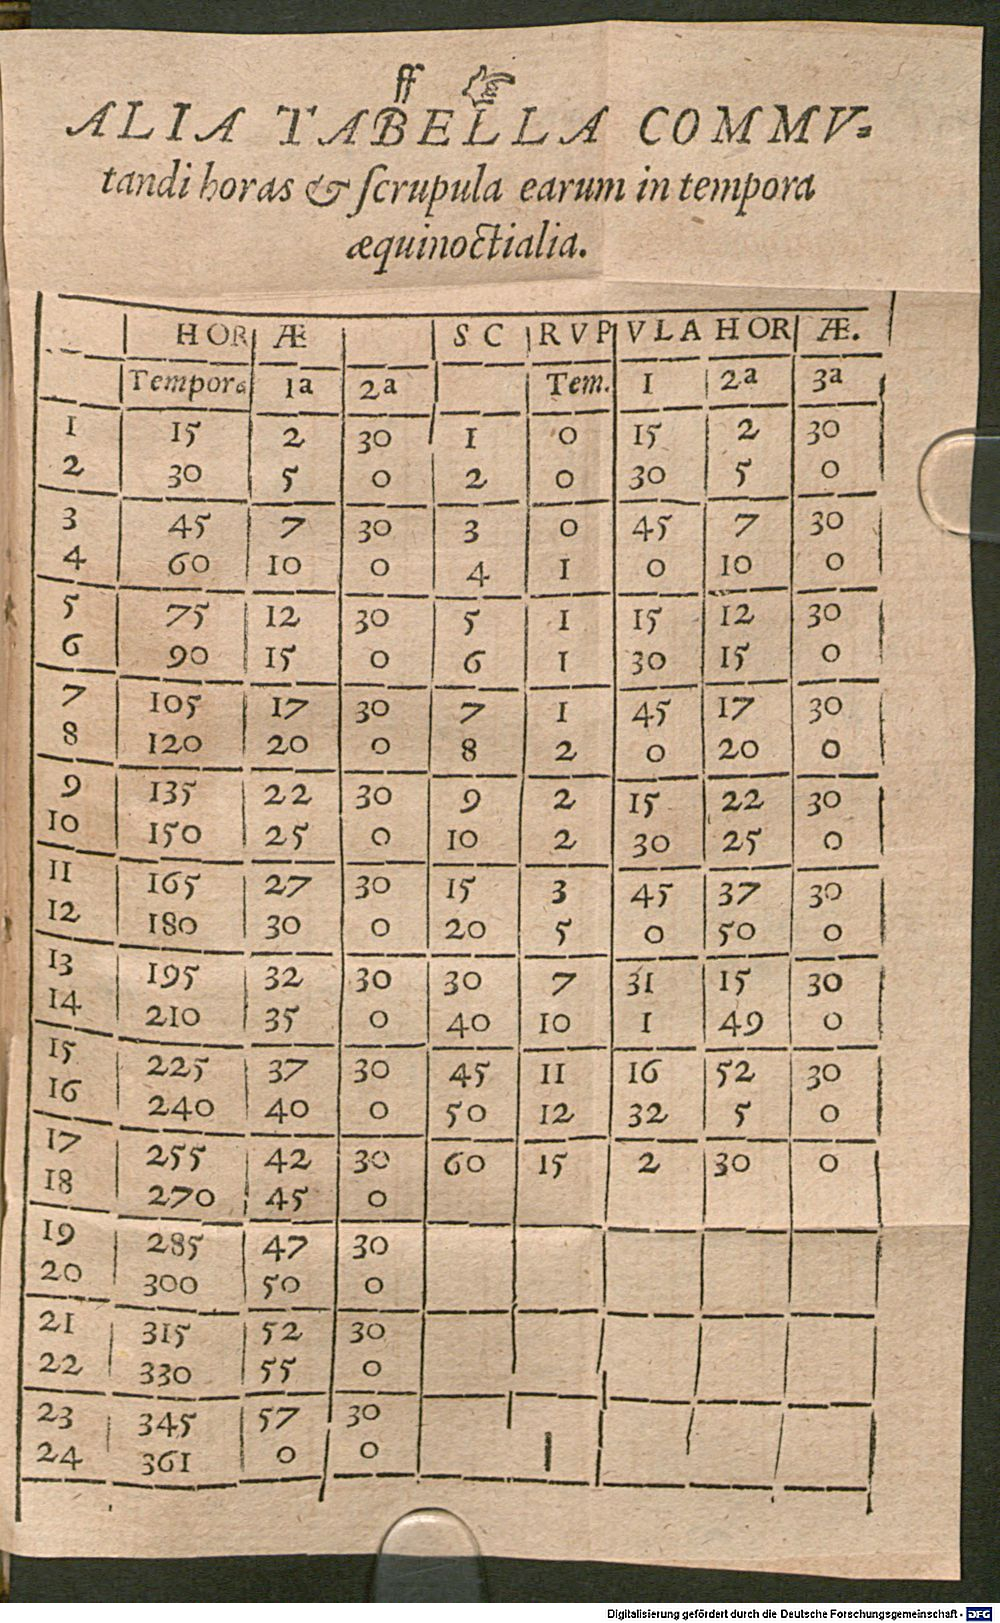 ff ☞
ALIA TABELLA COMMV⸗
tandi horas & ſcrupula earum in tempora
æquinoctialia.
HOR Æ SC RVP VLA HOR Æ.
Tempora 1a 2a Tem. I 2a 3a
1 15 2 30 1 0 15 2 30
2 30 5 0 2 0 30 5 0
3 45 7 30 3 0 45 7 30
4 60 10 0 4 1 0 10 0
5 75 12 30 5 1 15 12 30
6 90 15 0 6 1 30 15 0
7 105 17 30 7 1 45 17 30
8 120 20 0 8 2 0 20 0
9 135 22 30 9 2 15 22 30
10 150 25 0 10 2 30 25 0
11 165 27 30 15 3 45 37 30
12 180 30 0 20 5 0 50 0
13 195 32 30 30 7 31 15 30
14 210 35 0 40 10 1 49 0
15 225 37 30 45 11 16 52 30
16 240 40 0 50 12 32 5 0
17 255 42 30 60 15 2 30 0
18 270 45 0
19 285 47 30
20 300 50 0
21 315 52 30
22 330 55 0
23 345 57 30
24 361 0 0
Digitalisierung gefördert durch die Deutsche Forschungsgemeinschaft - DFG